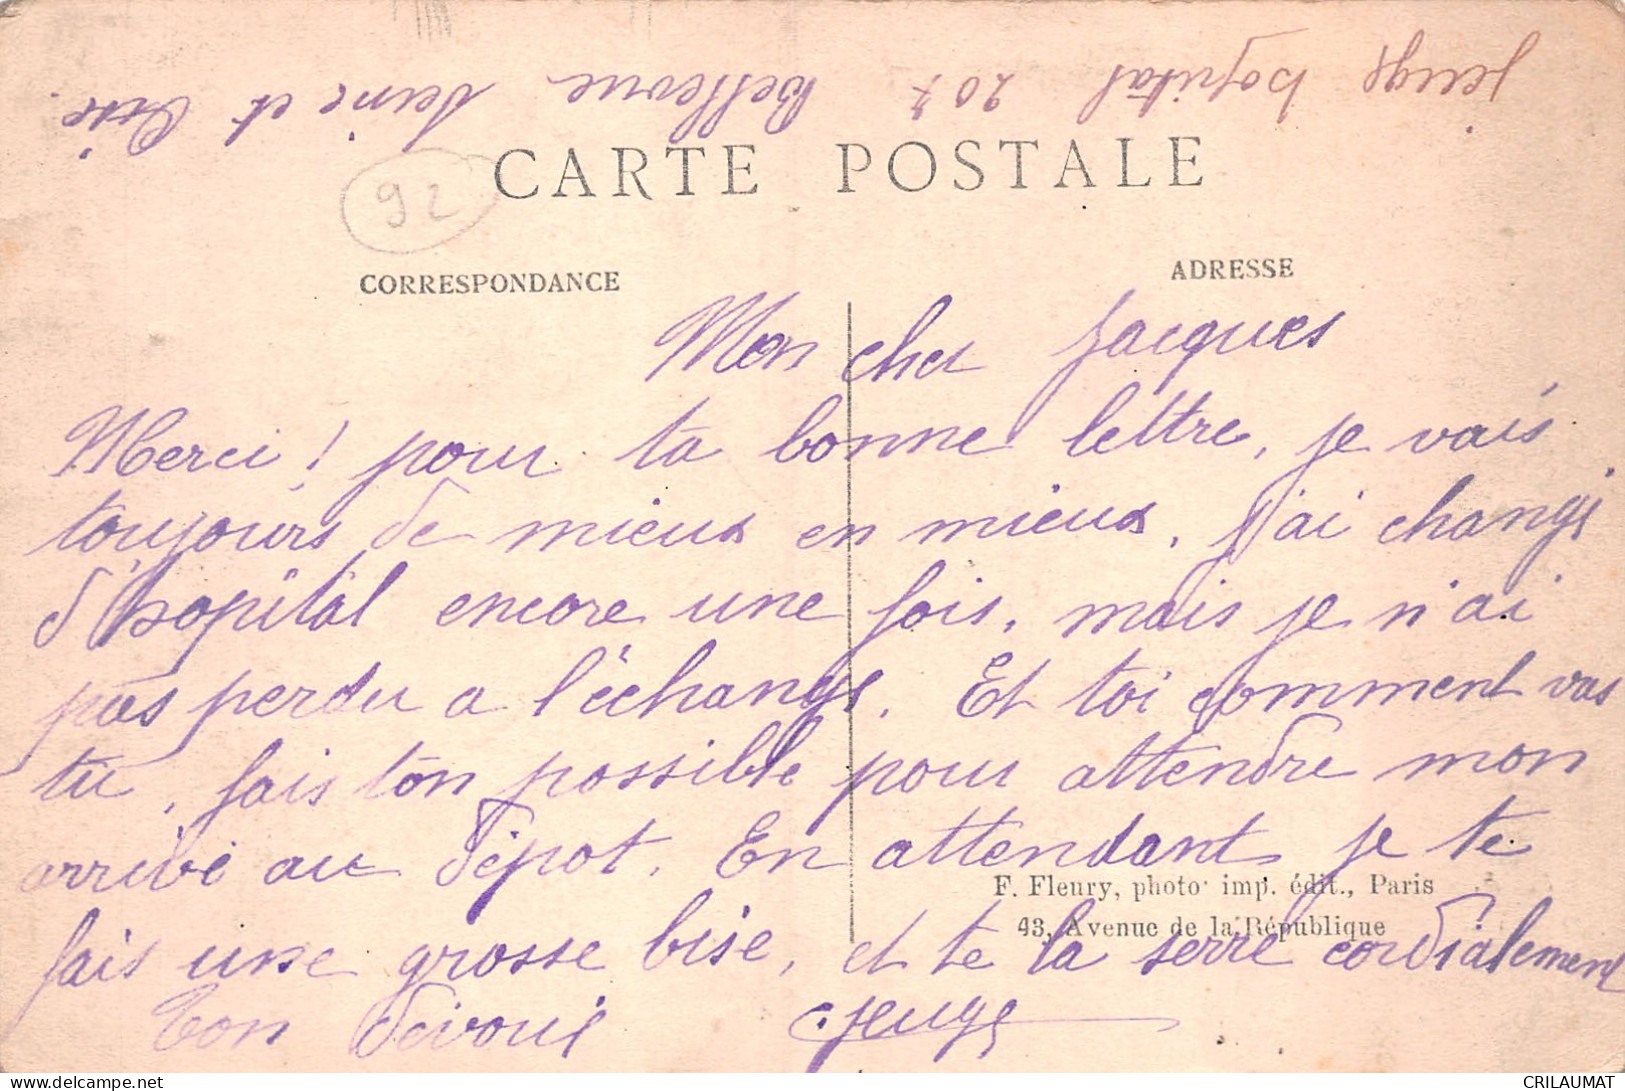 hôpital 207 Bellevue Seine et Oise
CARTE POSTALE
92
CORRESPONDANCE
ADRESSE
Mon cher Jacques
Merci ! pour ta bonne lettre, je vais
toujours de mieux en mieux, j'ai changé
d'hopital encore une fois, mais je n'ai
pas perdu a l'échange. Et toi comment vas
tu, fais ton possible pour attendre mon
arrivé au dépot. En attendant je te
F. Fleury, photo imp. édit., Paris
43, Avenue de la République
fais une grosse bise, et te la serre cordialement
Ton dévoué
CRILAUMAT